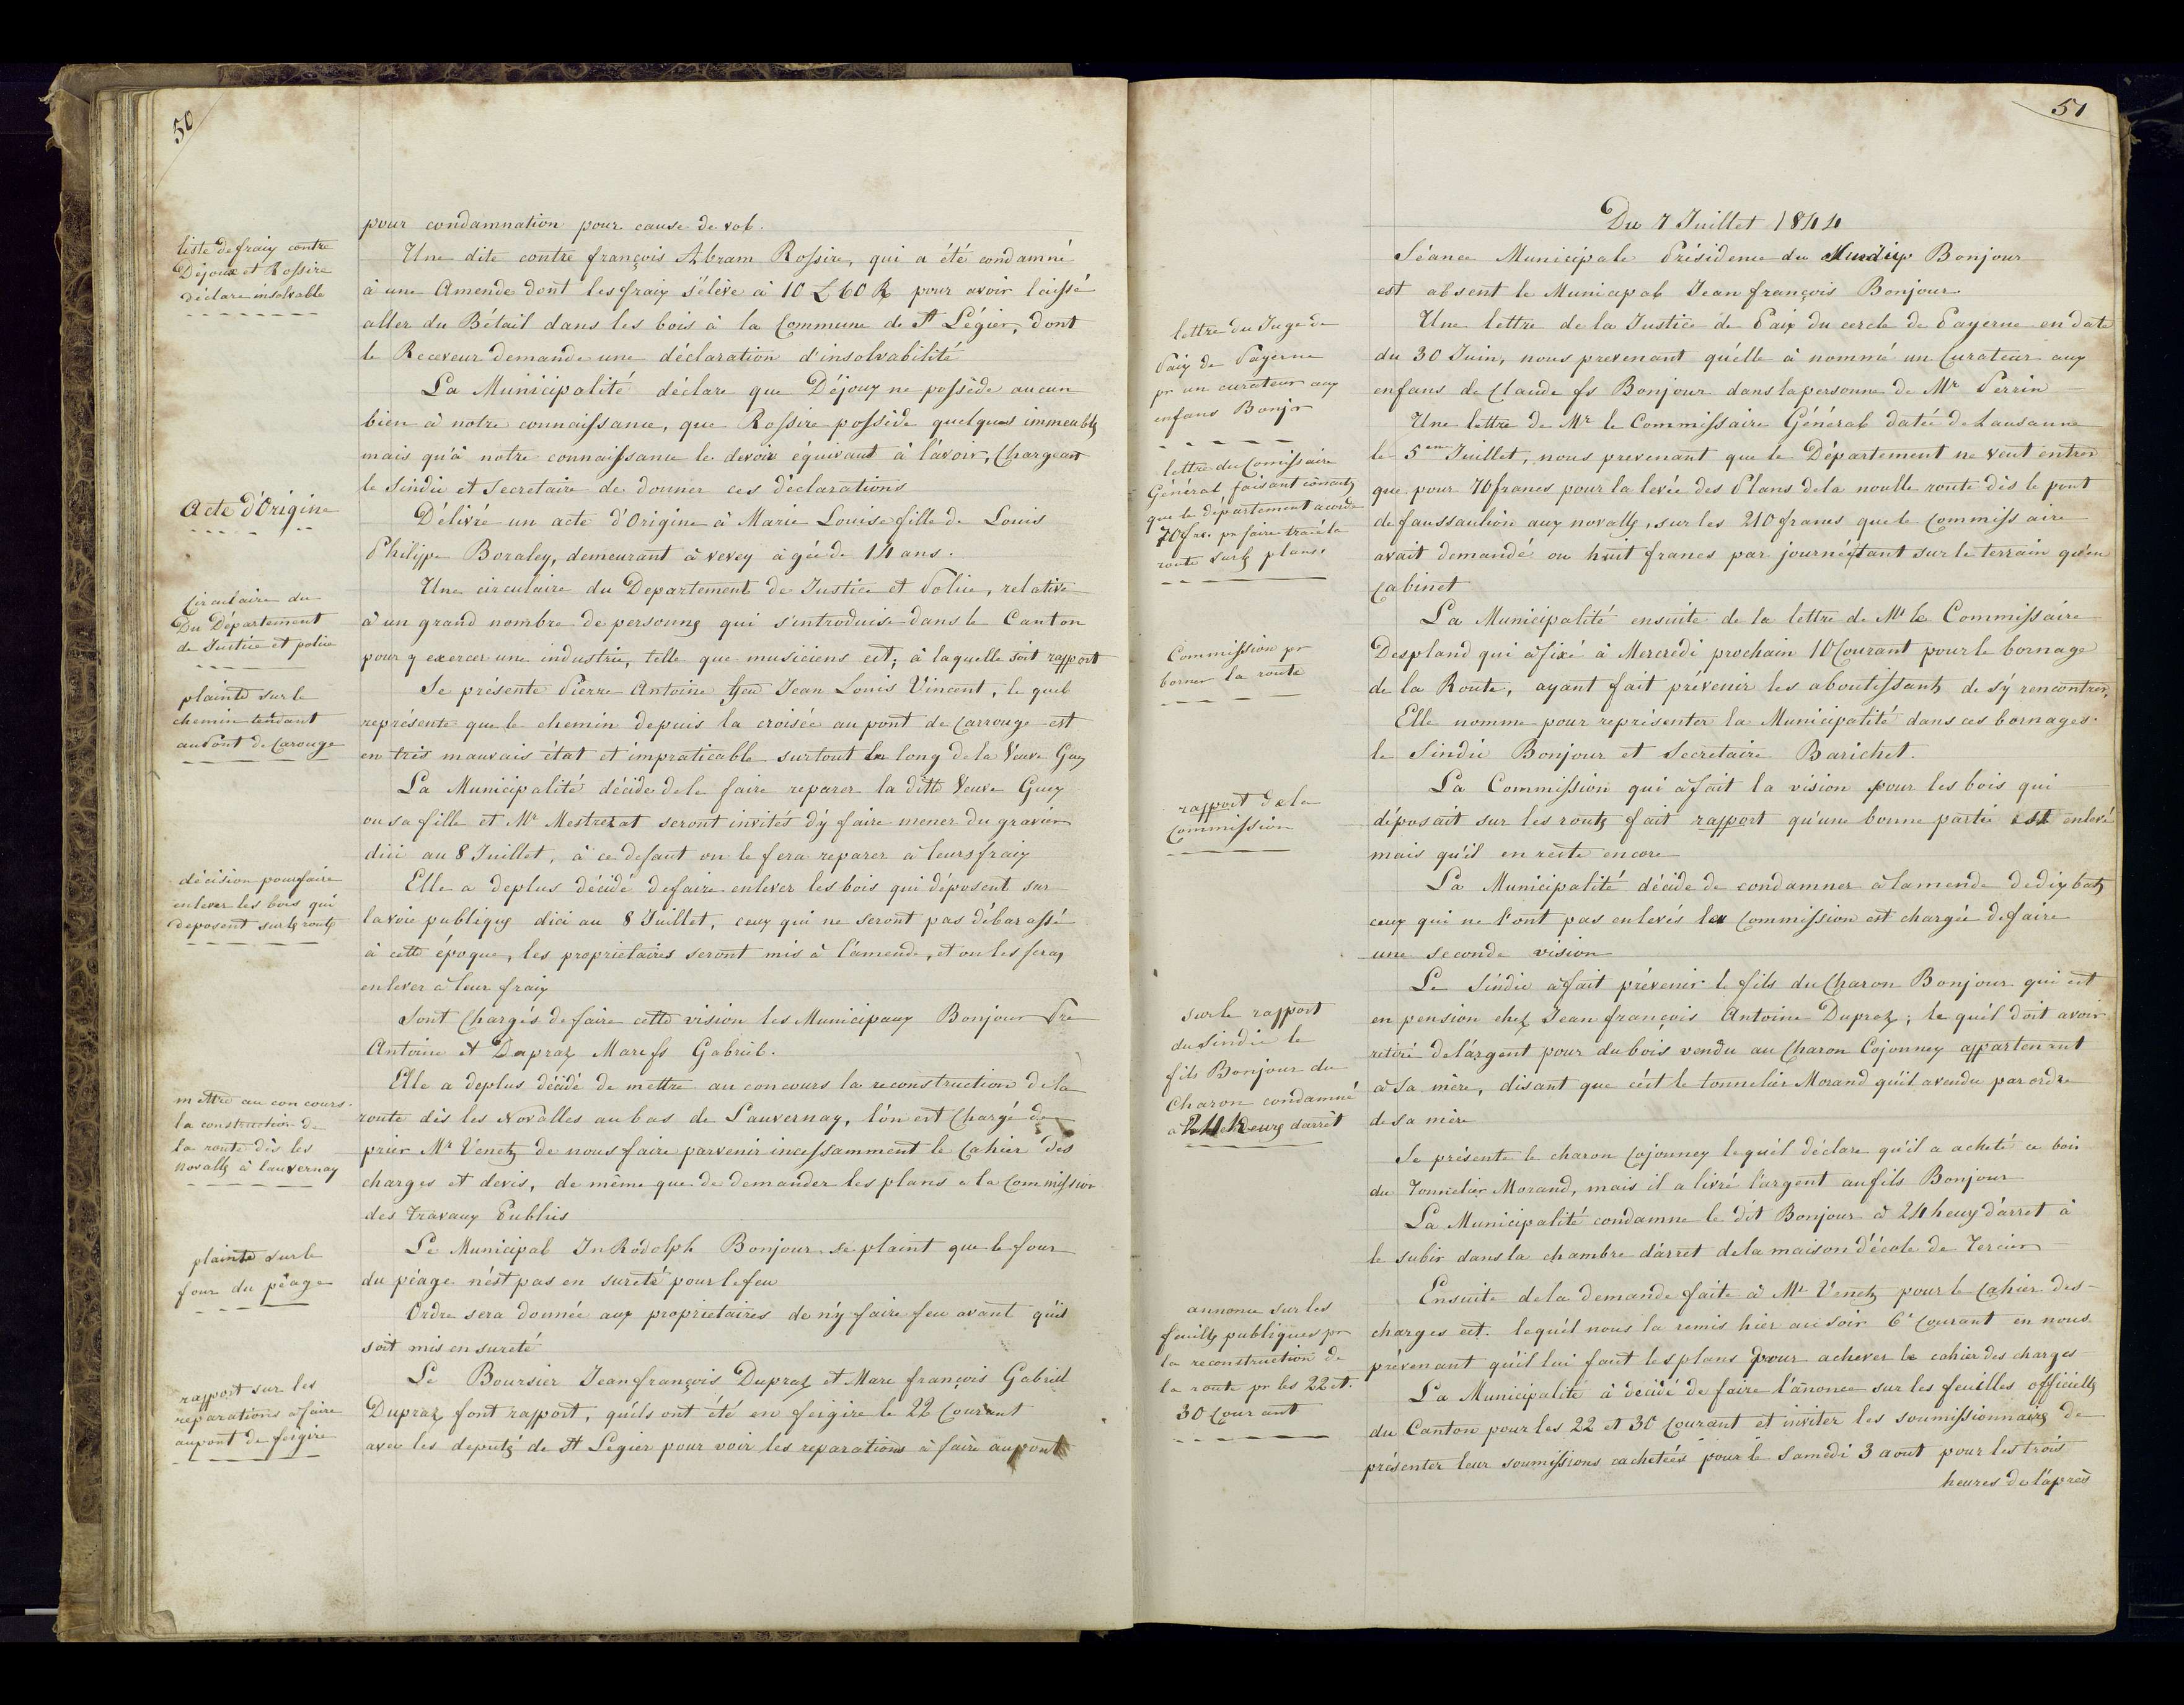 50
pour condamnation pour cause de vol.
liste de fraix contre
Déjoux et Rossire
déclare insolvable
Une dite contre françois Abram Rossire, qui a été condamné
à une Amende dont les fraix s'élève à 10 L 60 R pour avoir laissé
aller du Bétail dans les bois à la Commune de St Légier, dont
le Receveur demande une déclaration d'insolvabilité
La Municipalité déclare que Déjoux ne possède aucun
bien à notre connaissance, que Rossire possède quelques immeubles
mais qu'à notre connaissance le devoir équivaut à l'avoir, Chargeant
le Sindic et Secretaire de donner ces déclarations
Acte d'Origine
Délivré un acte d'Origine à Marie Louise fille de Louis
Philippe Boraley, demeurant à vevey agée de 14 ans.
Circulaire du
Du Département
de Justice et police
Une circulaire du Departement de Justice et Police, relative
à un grand nombre de personnes qui s'introduise dans le Canton
pour y exercer une industrie, telle que musiciens ect; à laquelle soit rapport
plainte sur le
chemin tendant
au Pont de Carouge
Se présente Pierre Antoine feu Jean Louis Vincent, le quel
représente que le chemin depuis la croisée au pont de Carrouge est
en très mauvais état et impraticable surtout le long de la Veuve Guex
La Municipalité décide de le faire reparer la ditte Veuve Guex
ou sa fille et Mr Mestrezat seront invités d'y faire mener du gravier
d'ici au 8 Juillet, à ce defaut on le fera reparer à leurs fraix
décision pour faire
enlever les bois qui
deposent sur les routes
Elle a deplus décidé de faire enlever les bois qui déposent sur
la voie publique dici au 8 Juillet, ceux qui ne seront pas débarassé
à cette époque, les proprietaires seront mis à l'amende, et on les feras
enlever à leur fraix
Sont Chargés de faire cette vision les Municipaux Bonjour Pre
Antoine et Dupraz Marc fs Gabriel.
mettre au concours
la construction de
la route dès les
novalles à lauvernay
Elle a deplus décidé de mettre au concours la reconstruction de la
route dès les Novalles au bas de Lauvernay, l'on est Chargé de
prier Mr Venetz de nous faire parvenir incessamment le Cahier des
charges et devis, de même que de demander les plans a la Commission
des Travaux Publiis
plainte sur le
four du péage
Le Municipal Jn Rodolph Bonjour se plaint que le four
du péage n'est pas en sureté pour le feu
Ordre sera donnée aux proprietaires de n'y faire feu avant qu'il
soit mis en sureté
rapport sur les
réparations a faire
au pont de feigire
Le Boursier Jean françois Dupraz et Marc françois Gabriel
Dupraz font rapport, qu'ils ont été en feigire le 22 Courant
avec les deputés de St Légier pour voir les reparations à faire au pont
51
Du 7 Juillet 1844
Séance Municipale Présidence du Bonjour
est absent le Municipal Jean françois Bonjour
lettre du Juge de
Paix de Payerne
pr un curateur aux
enfans Bonjr
Une lettre de la Justice de Paix du cercle de Payerne en date
du 30 Juin, nous prevenant qu'elle à nommé un Curateur aux
enfans de Claude fs Bonjour dans la personne de Mr Perrin
lettre du Comissaire
Général faisant
que le département acorde
70 frs. pr faire tracé la
route sur les plans.
Une lettre de Mr le Commissaire Général datée de Lausanne
le 5em Juillet, nous prevenant que le Département ne veut entrer
que pour 70 francs pour la levée des Plans de la noulle route dès le pont
de faussaulion aux novalles, sur les 210 francs que le Commissaire
avait demandé ou huit francs par journée tant sur le terrain qu'en
Cabinet
Commission pr
borner la route
La Municipalité ensuite de la lettre de Mr le Commissaire
Despland qui à fixé à Mercredi prochain 10 Courant pour le bornage
de la Route, ayant fait prévenir les aboutissants de s'y rencontrer,
Elle nomme pour représenter la Municipalité dans ces bornages.
le Sindic Bonjour et Secretaire Barichet.
rapport de la
commission
La Commission qui à fait la vision pour les bois qui
déposait sur les routes fait rapport qu'une bonne partie est enlevé
mais qu'il en reste encore
La Municipalité décide de condamner à lamende de dix batz
ceux qui ne l'ont pas enlevés la Commission est chargée de faire
une seconde vision
sur le rapport
du Sindic le
fils Bonjour du
Charon condamné
à 24 heures darrèt
Le Sindic à fait prévenir le fils du Charon Bonjour qui est
en pension chez Jean françois Antoine Dupraz; le quél doit avoir
retiré de l'argent pour du bois vendu au Charon Cojonney appartenant
à Sa mère, disant que c'est le tonnelier Morand qu'il a vendu par ordre
de Sa mère
Se présente le charon Cojonney lequél déclare qu'il a acheté ce bois
du Tonnelier Morand, mais il a livré l'argent au fils Bonjour
La Municipalité condamne le dit Bonjour à 24 heures d'arret à
le subir dans la chambre d'arret de la maison d'école de Tercier
annonce sur les
feuilles publiques pr
la reconstruction de
la route pr les 22 et.
30 Courant
Ensuite de la demande faite à Mr Venetz pour le Cahier des
charges ect. lequél nous la remis hier au soir 6e Courant en nous
prévenant qu'il lui faut les plans pour achever le cahier des charges
La Municipalité à décidé de faire l'anonce sur les feuilles officielles
du Canton pour les 22 et 30 Courant et inviter les soumissionnaires de
présenter leur soumissions cachetées pour le Samedi 3 aout pour les trois
heures de l'après